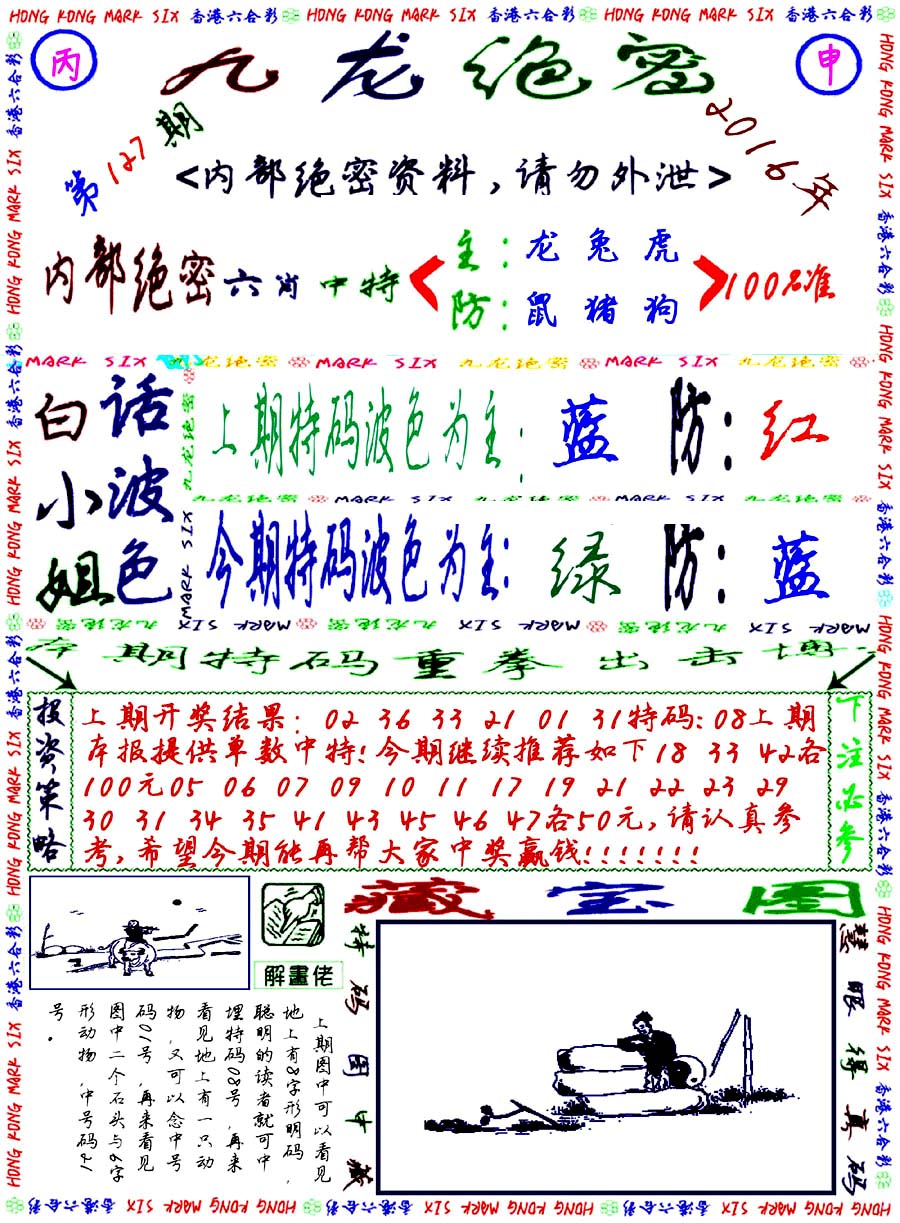 HONG KONG MARK SIX 香港六合彩 HONG KONG MARK SIX 香港六合彩 HONG KONG MARK SIX 香港六合彩
丙
九龙绝密
申
第127期
2016年
<内部绝密资料,请勿外泄>
内部绝密六肖中特
主:龙兔虎
防:鼠猪狗
100%准
MARK SIX 九龙绝密 MARK SIX 九龙绝密 MARK SIX 九龙绝密
白小姐
话波色
上期特码波色为主:蓝 防:红
九龙绝密 MARK SIX 九龙绝密 MARK SIX 九龙绝密
今期特码波色为主:绿 防:蓝
MARK SIX 九龙绝密 MARK SIX 九龙绝密 MARK SIX 九龙绝密
本期特码重拳出击
投资策略
上期开奖结果:02 36 33 21 01 31特码:08上期
本报提供单数中特!今期继续推荐如下18 33 42各
100元05 06 07 09 10 11 17 19 21 22 23 29
30 31 34 35 41 43 45 46 47各50元,请认真参
考,希望今期能再帮大家中奖赢钱!!!!!!!
下注必参
解畫佬
藏宝图
特码图中藏
慧眼得真码
上期图中可以看见
地上有8字形明码,
聪明的读者就可中
埋特码08号,再来
看见地上有一只动
物,又可以念中号
码01号,再来看见
图中二个石头与6字
形动物,中号码21
号.
HONG KONG MARK SIX 香港六合彩 HONG KONG MARK SIX 香港六合彩 HONG KONG MARK SIX 香港六合彩